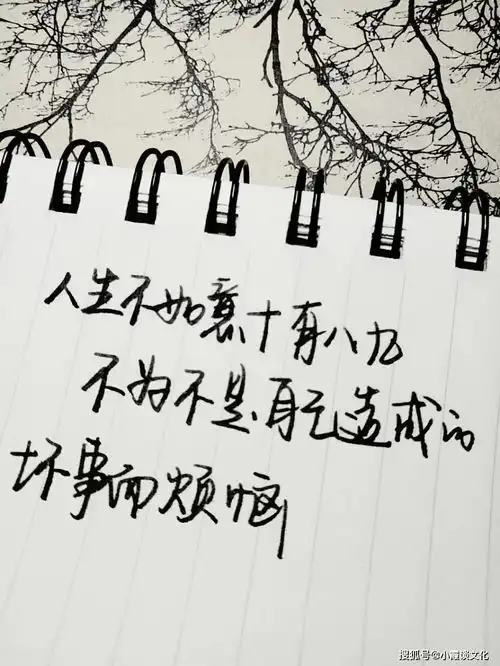 人生不如意十有八九
不为不是自己造成的
坏事而烦恼
搜狐号@小霞谈文化